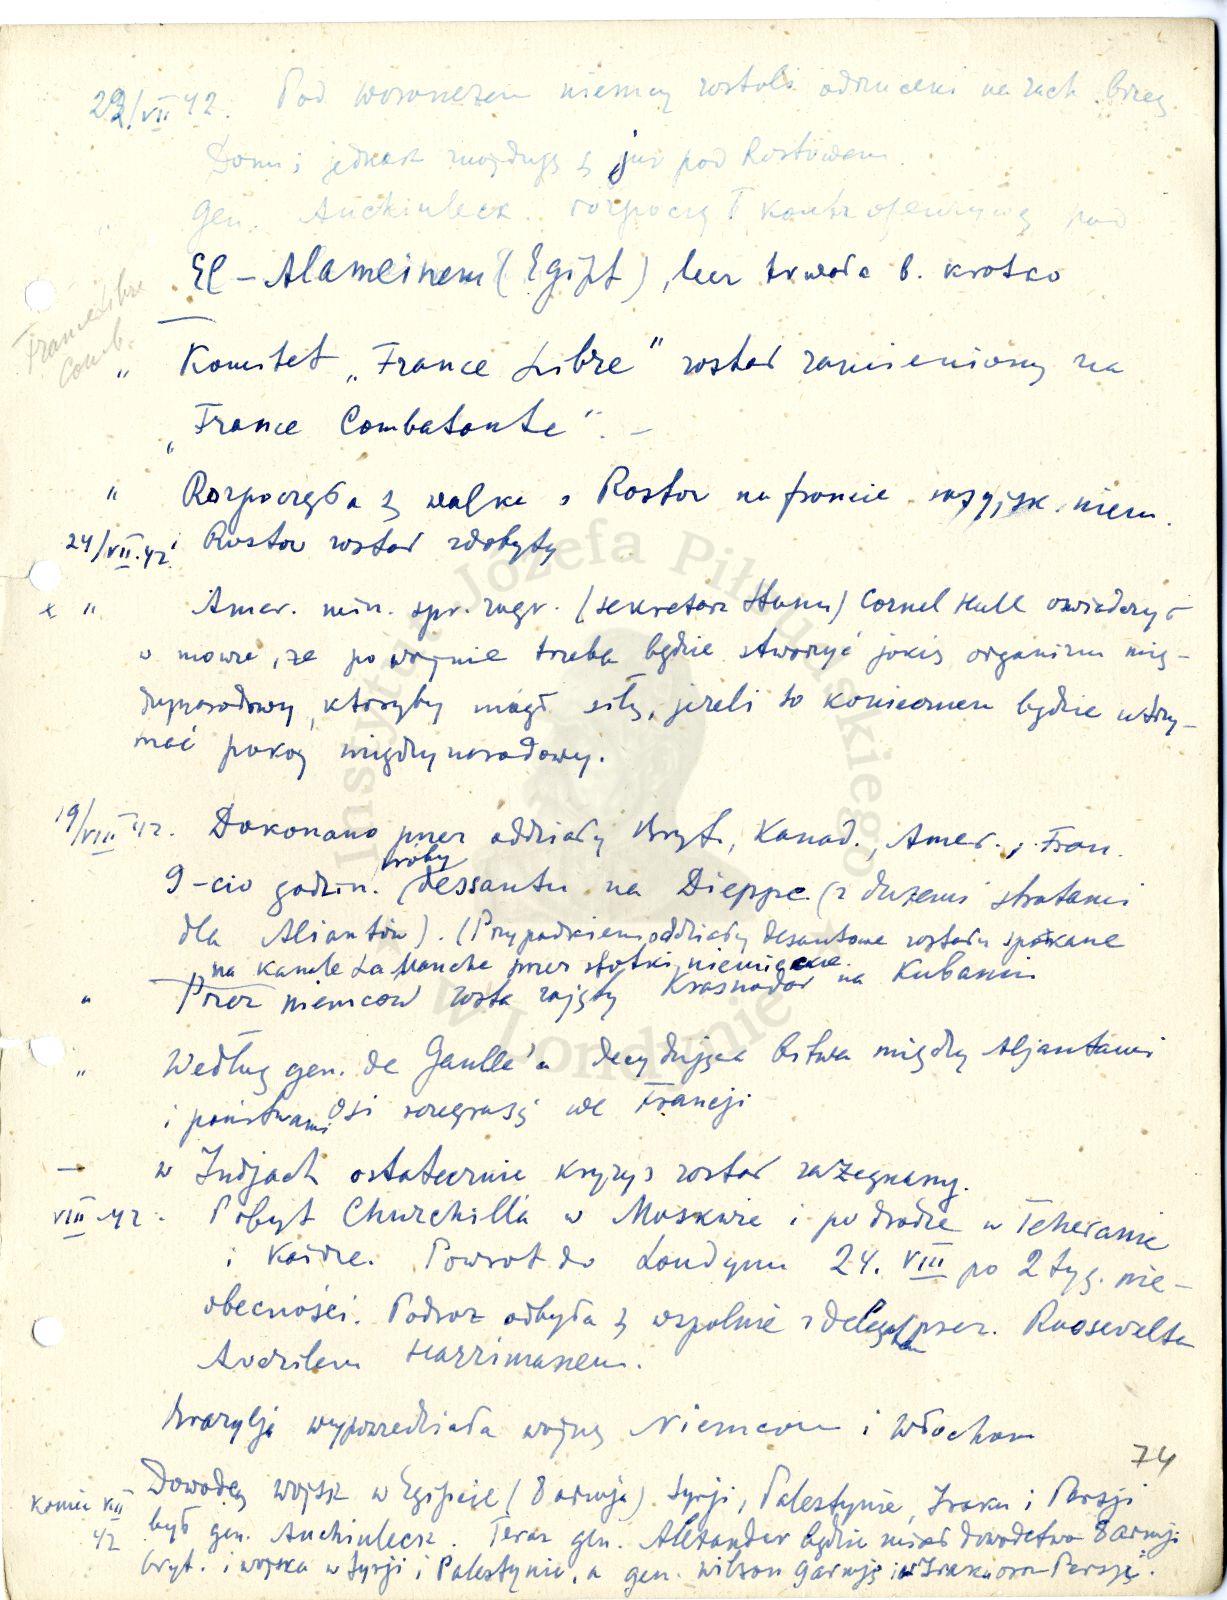 22/VII 42. Pod Woroneżem niemcy zostali odrzuceni na zach. brzeg
Donu i jednak znajdują się już pod Rostowem.
" Gen. Auchinleck rozpoczął kontrofenzywę pod
El-Alameinem (Egipt), lecz trwała b. krótko
France Libre
Comb.
" Komitet „France Libre" został zamieniony na
„France Combatante". –
" Rozpoczęła się walka o Rostow na froncie rosyjsk. niem.
24/VII.42. Rostow został zdobyty
x " Amer. min. spr. zagr. (sekretarz Stanu) Cornel Hull oświadczył
w mowie, że po wojnie trzeba będzie stworzyć jakiś organizm mię-
dzynarodowy, któryby mógł siłą, jeżeli to koniecznem będzie utrzy-
mać pokój międzynarodowy.
19/VIII 42. Dokonano przez oddziały Bryt., Kanad., Amer. i Fran.
9-cio godzin. próby dessantu na Dieppe (z dużemi stratami
dla Aliantów). (Przypadkiem oddziały desantowe zostały spotkane
na kanale La Manche przez statki niemieckie.
" Przez niemców zosta zajęty Krasnodar na Kubaniu
" Według gen. de Gaulle'a decydująca bitwa między Aljantami
i państwami Osi rozegra się we Francji
— w Indjach ostatecznie kryzys został zażegnany.
VIII 42. Pobyt Churchilla w Moskwie i po drodze w Teheranie
i Kairze. Powrot do Londynu 24. VIII po 2 tyg. nie-
obecności. Podroż odbyła się wspolnie z delegatem prez. Roosevelta
Averilem Harrimanem.
Brazylja wypowiedziała wojnę Niemcom i Włochom
74
koniec VIII 42 Dowodcą wojsk w Egipcie (8 armja) Syrji, Palestynie, Iraku i Persji
był gen. Auchinleck. Teraz gen. Alexander będzie miał dowodztwo 8 armji
bryt. i wojska w Syrji i Palestynie, a gen. Wilson 9 armją i w Iraku oraz Persji.
Instytut Józefa Piłsudskiego
w Londynie